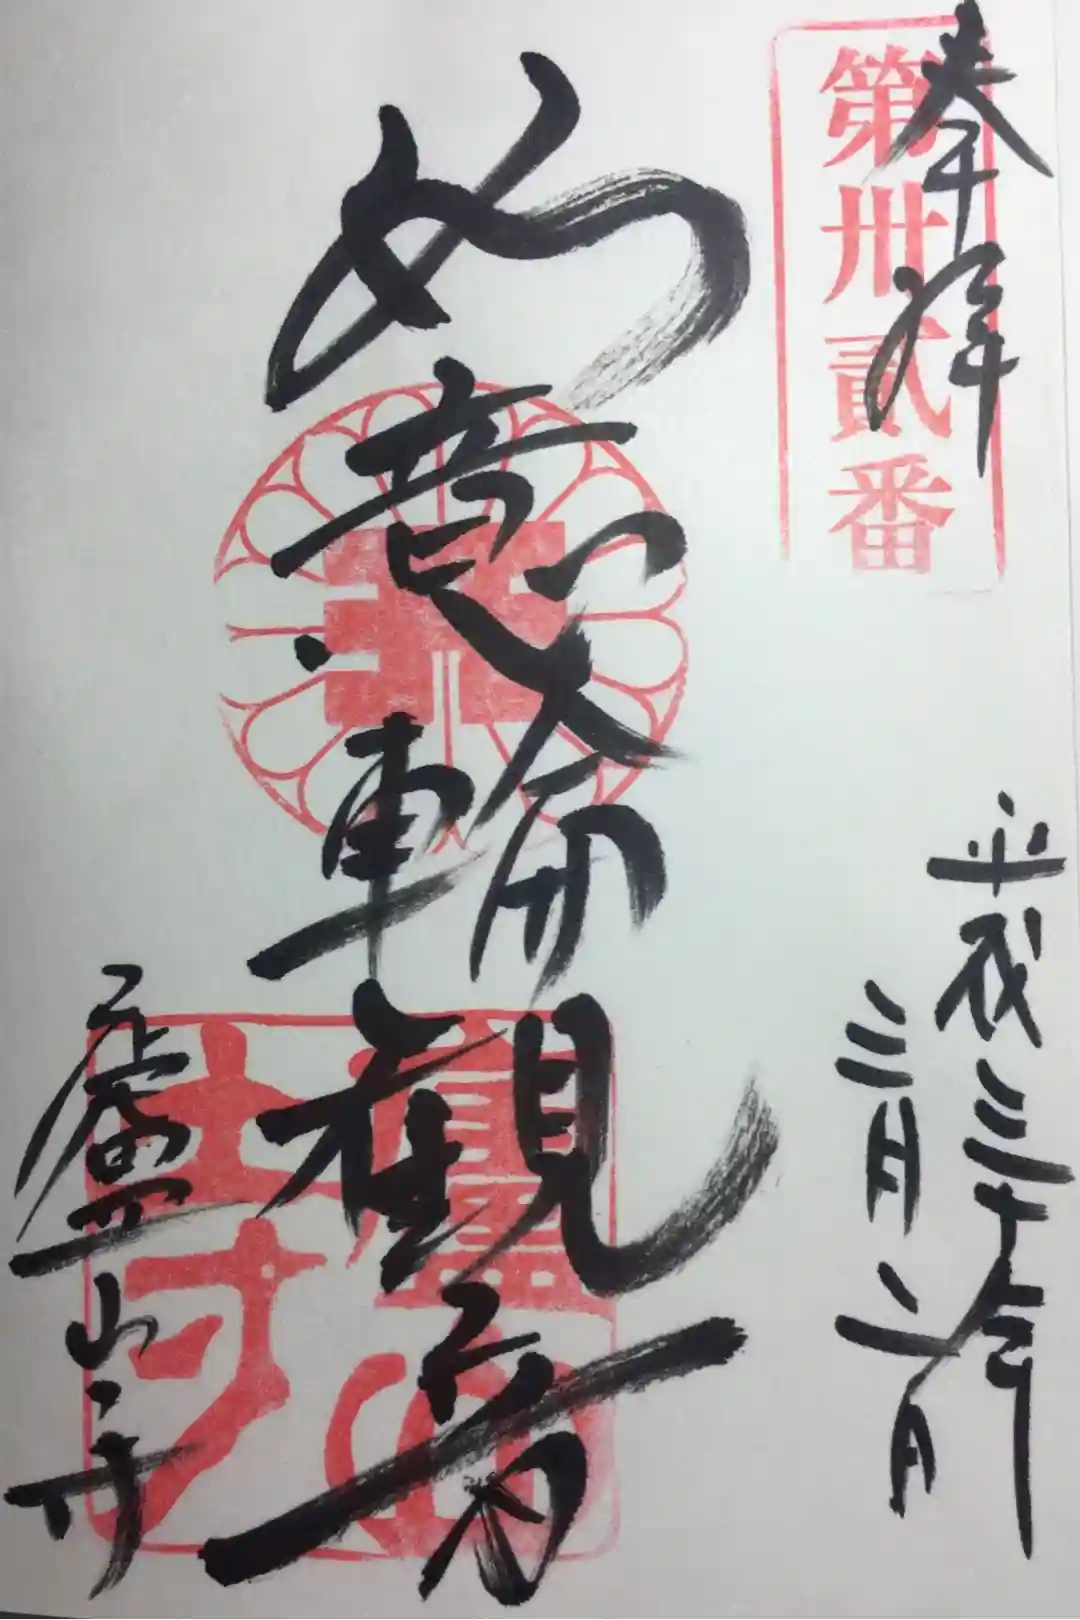 奉拝
第卅貳番
平成三十年
三月二日
如意輪観音
廬山寺
廬山寺